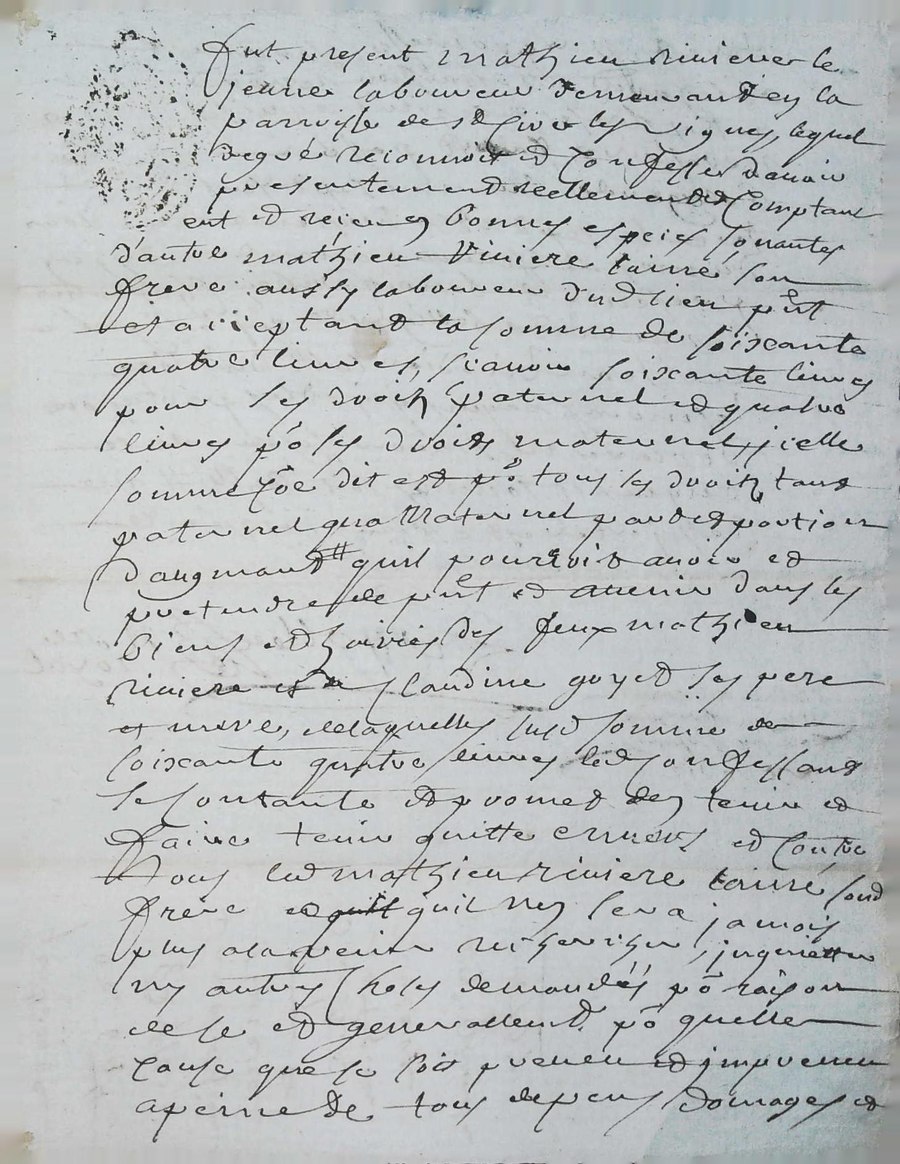 fut present mathieu riviere le
jeune laboureur demeurant en la
parroisse de st Cire les Vignes, lequel
de gré reconnoit et Confesse d'avoir
presentement reellement et Comptant
eut et receu en bonnes especes sonantes
d'autre mathieu Riviere laisné son
frere aussy laboureur dud lieu pnt
et acceptant la somme de soixante
quatre livres, scavoir soixante livres
pour ses droits paternel et quatre
livres po ses droits maternel, icelle
somme coe dit est po tous ses droits tant
paternel qua Maternel part et portion
d'augmant qu'il pourroit avoir et
pretendre de pnt et avenir dans les
biens et hoiries des feux mathieu
riviere et Claudine goyet ses pere
et mere, de laquelle susd somme de
soixante quatre livres led confessant
se contante et promet den tenir et
faire tenir quitte envers et Contre
tous led mathieu riviere laisné sond
frere et quil nen sera jamais
plus a lavenir recherché, inquietté
ny autres choses demandées po raison
de ce et generallemt po quelle
cause que se soit preveu et impreveu
a peine de tous depens domages et